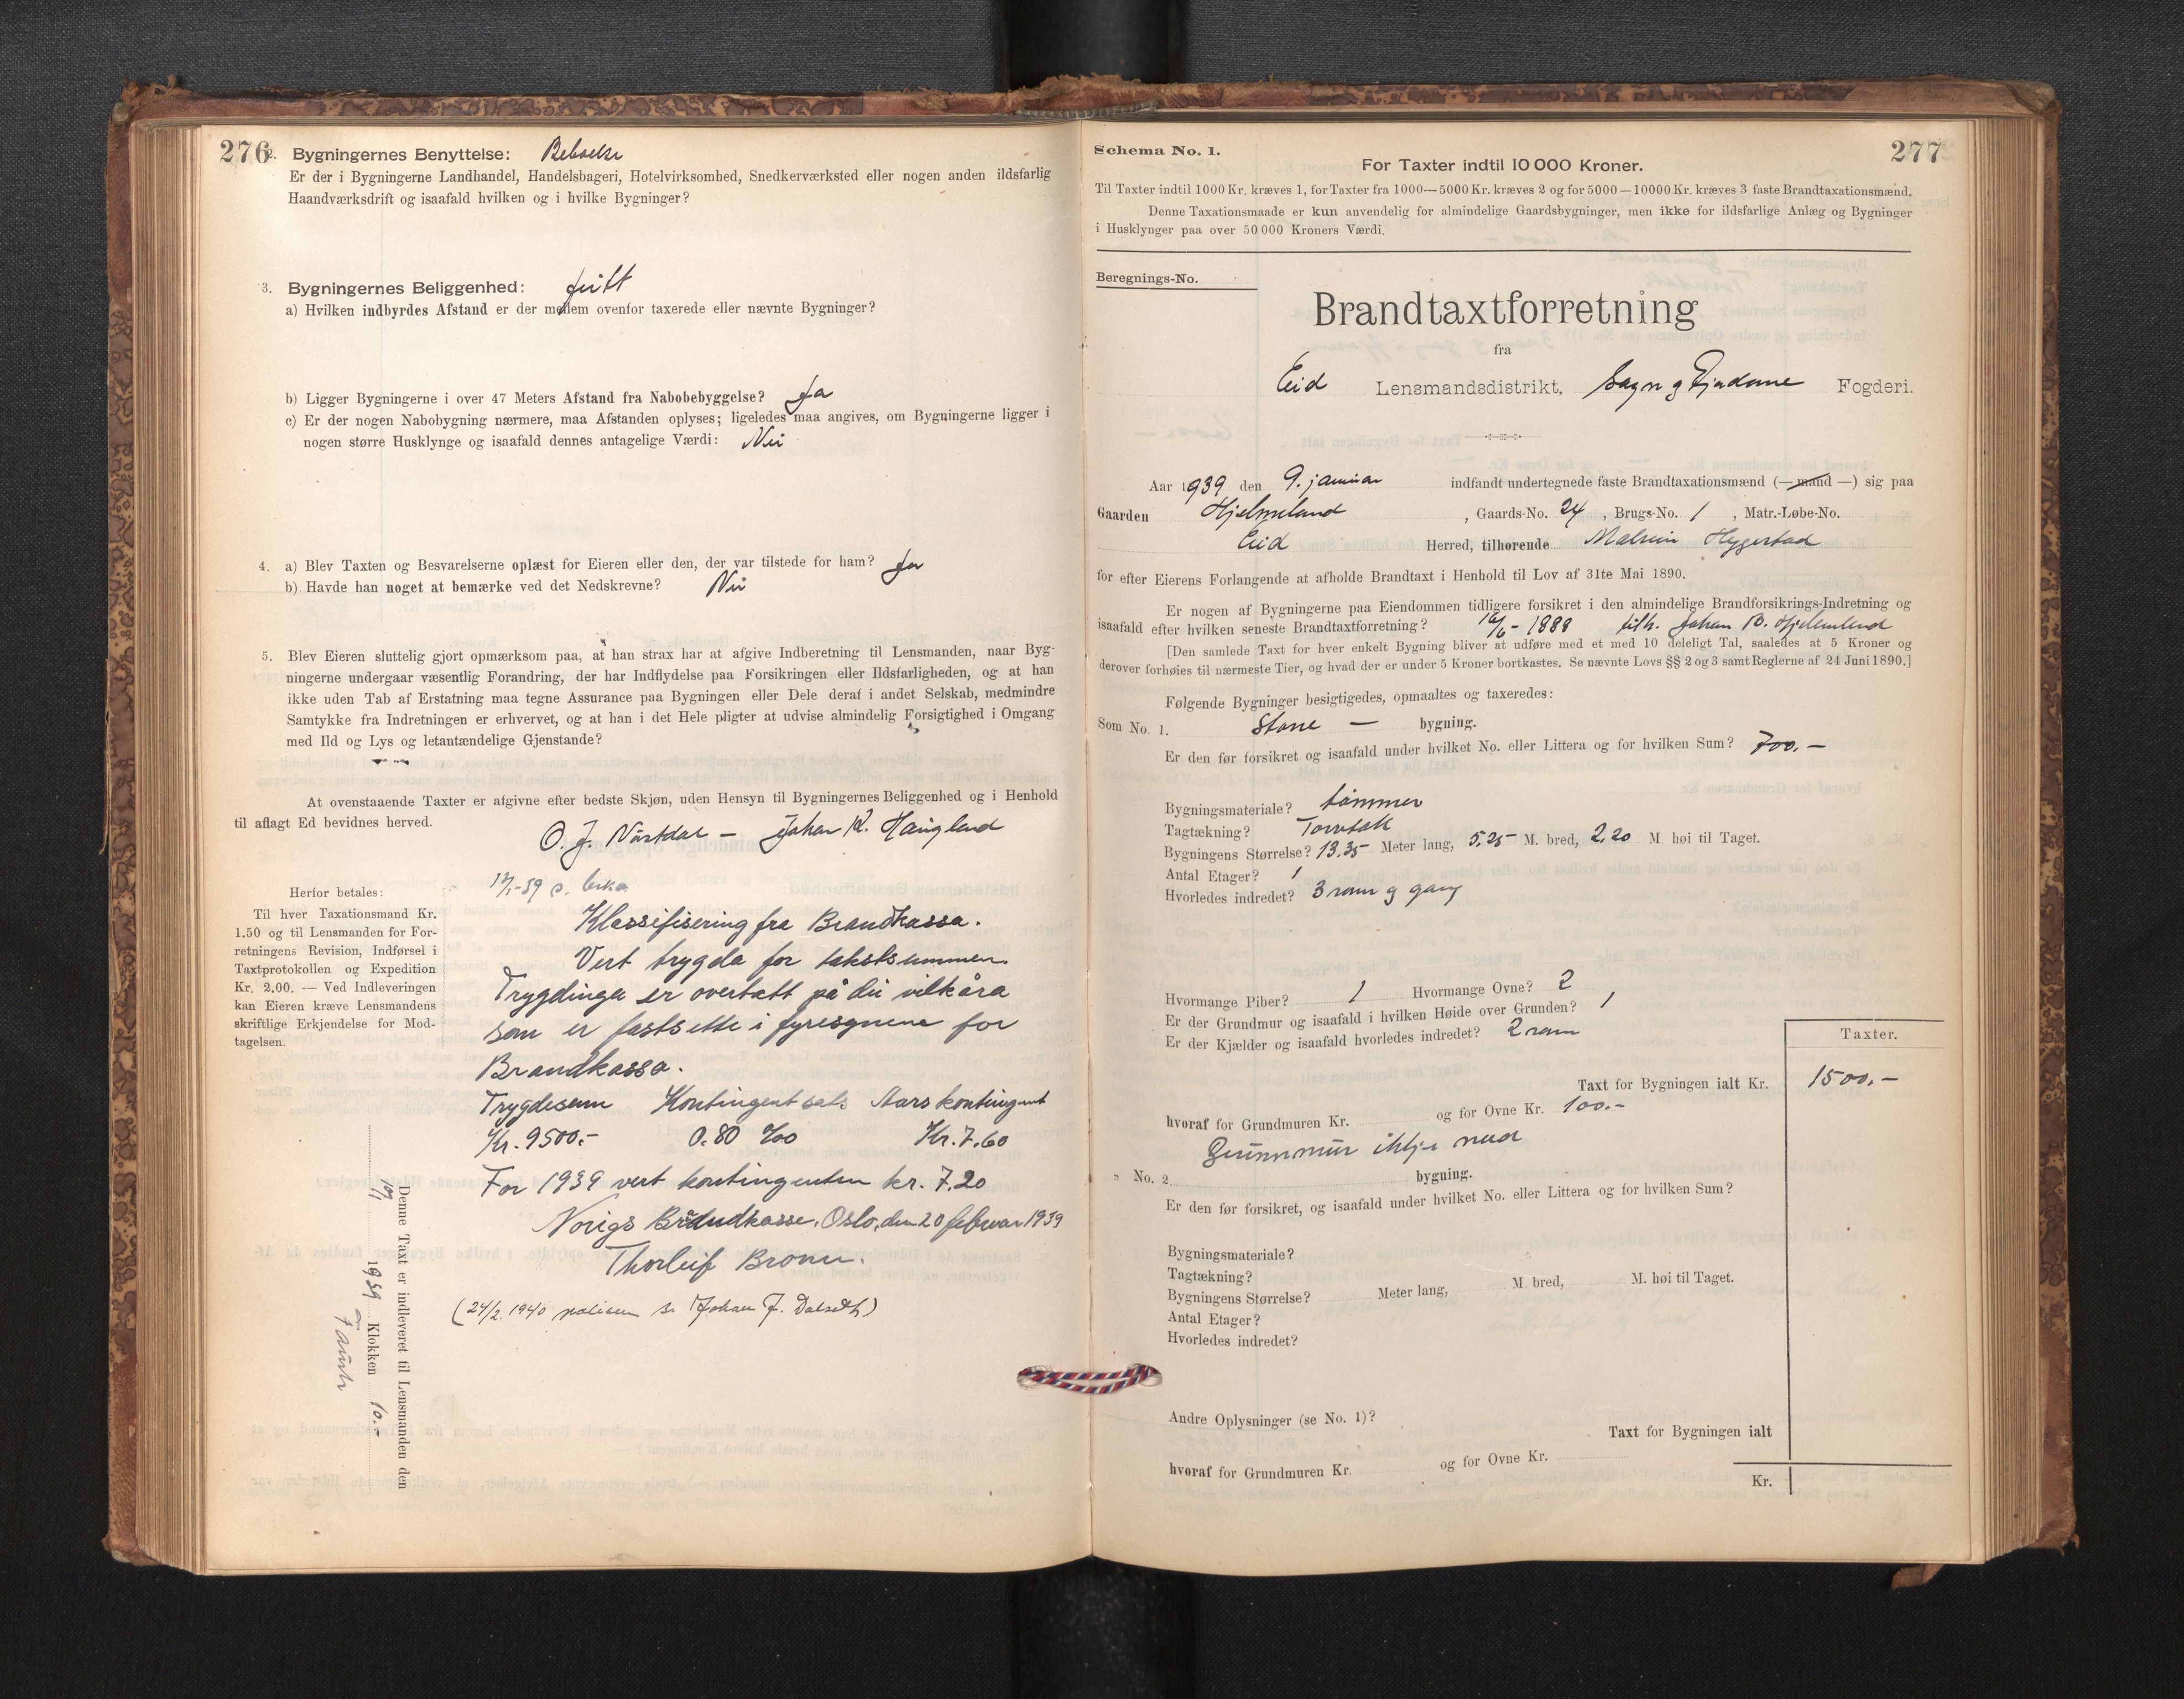 276
2. Bygningernes Benyttelse: Beboelse
Er der i Bygningerne Landhandel, Handelsbageri, Hotelvirksomhed, Snedkerværksted eller nogen anden ildsfarlig
Haandværksdrift og isaafald hvilken og i hvilke Bygninger?
3. Bygningernes Beliggenhed: fritt
a) Hvilken indbyrdes Afstand er der mellem ovenfor taxerede eller nævnte Bygninger?
b) Ligger Bygningerne i over 47 Meters Afstand fra Nabobebyggelse? Ja
c) Er der nogen Nabobygning nærmere, maa Afstanden oplyses; ligeledes maa angives, om Bygningerne ligger i
nogen større Husklynge og isaafald dennes antagelige Værdi: Nei
4. a) Blev Taxten og Besvarelserne oplæst for Eieren eller den, der var tilstede for ham? Ja
b) Havde han noget at bemærke ved det Nedskrevne? Nei
5. Blev Eieren sluttelig gjort opmærksom paa, at han strax har at afgive Indberetning til Lensmanden, naar Byg-
ningerne undergaar væsentlig Forandring, der har Indflydelse paa Forsikringen eller Ildsfarligheden, og at han
ikke uden Tab af Erstatning maa tegne Assurance paa Bygningen eller Dele deraf i andet Selskab, medmindre
Samtykke fra Indretningen er erhvervet, og at han i det Hele pligter at udvise almindelig Forsigtighed i Omgang
med Ild og Lys og letantændelige Gjenstande?
At ovenstaaende Taxter er afgivne efter bedste Skjøn, uden Hensyn til Bygningernes Beliggenhed og i Henhold
til aflagt Ed bevidnes herved.
O. J. Nårstdal — Johan K. Haugland
Herfor betales:
Til hver Taxationsmand Kr.
1.50 og til Lensmanden for For-
retningens Revision, Indførsel i
Taxtprotokollen og Expedition
Kr. 2.00. — Ved Indleveringen
kan Eieren kræve Lensmandens
skriftlige Erkjendelse for Mod-
tagelsen.
Klassifisering fra Brandkassa.
Vert trygda for takstsummen.
Trygdinga er overtatt på dei vilkåra
som er fastsette i fyresegnene for
Brandkassa.
Trygdesum Kontingentsats Aarskontingent
Kr. 9500.- 0.80 ‰ Kr. 7.60
For 1939 vert kontingenten kr. 7.20
Norigs Brandkasse, Oslo, den 20 februar 1939
(24/2. 1940 polisen s. Johan J. Dalseth)
Denne Taxt er indleveret til Lensmanden den
10/1 1939 Klokken 10.-
277
Schema No. 1.
For Taxter indtil 10 000 Kroner.
Til Taxter indtil 1000 Kr. kræves 1, for Taxter fra 1000—5000 Kr. kræves 2 og for 5000—10000 Kr. kræves 3 faste Brandtaxationsmænd.
Denne Taxationsmaade er kun anvendelig for almindelige Gaardsbygninger, men ikke for ildsfarlige Anlæg og Bygninger
i Husklynger paa over 50 000 Kroners Værdi.
Beregnings-No.
Brandtaxtforretning
fra
Eid Lensmandsdistrikt, Sogn og Fjordane Fogderi.
Aar 1939 den 9. januar indfandt undertegnede faste Brandtaxationsmænd (—mand —) sig paa
Gaarden Hjelmeland, Gaards-No. 24, Brugs-No. 1, Matr.-Løbe-No.
Eid Herred, tilhørende Malvin Hygerstad
for efter Eierens Forlangende at afholde Brandtaxt i Henhold til Lov af 31te Mai 1890.
Er nogen af Bygningerne paa Eiendommen tidligere forsikret i den almindelige Brandforsikrings-Indretning og
isaafald efter hvilken seneste Brandtaxtforretning? 16/6 - 1888 tilh. Johan B. Hjelmeland
[Den samlede Taxt for hver enkelt Bygning bliver at udføre med et med 10 deleligt Tal, saaledes at 5 Kroner og
derover forhøies til nærmeste Tier, og hvad der er under 5 Kroner bortkastes. Se nævnte Lovs §§ 2 og 3 samt Reglerne af 24 Juni 1890.]
Følgende Bygninger besigtigedes, opmaaltes og taxeredes:
Som No. 1. Stove — bygning.
Er den før forsikret og isaafald under hvilket No. eller Littera og for hvilken Sum? 700.—
Bygningsmateriale? tømmer
Tagtækning? Torvtak
Bygningens Størrelse? 13.35 Meter lang, 5.25 M. bred, 2.20 M. høi til Taget.
Antal Etager? 1
Hvorledes indredet? 3 rom og gang
Hvormange Piber? 1 Hvormange Ovne? 2
Er der Grundmur og isaafald i hvilken Høide over Grunden? 1
Er der Kjælder og isaafald hvorledes indredet? 2 rom
Taxter.
Taxt for Bygningen ialt Kr. 1500.—
hvoraf for Grundmuren Kr. og for Ovne Kr. 100.—
Grunnmur ikkje med
„ No. 2. bygning.
Er den før forsikret, og isaafald under hvilket No. eller Littera og for hvilken Sum?
Bygningsmateriale?
Tagtækning?
Bygningens Størrelse? Meter lang, M. bred, M. høi til Taget.
Antal Etager?
Hvorledes indredet?
Andre Oplysninger (se No. 1)?
Taxt for Bygningen ialt
hvoraf for Grundmuren Kr. og for Ovne Kr.
Kr.